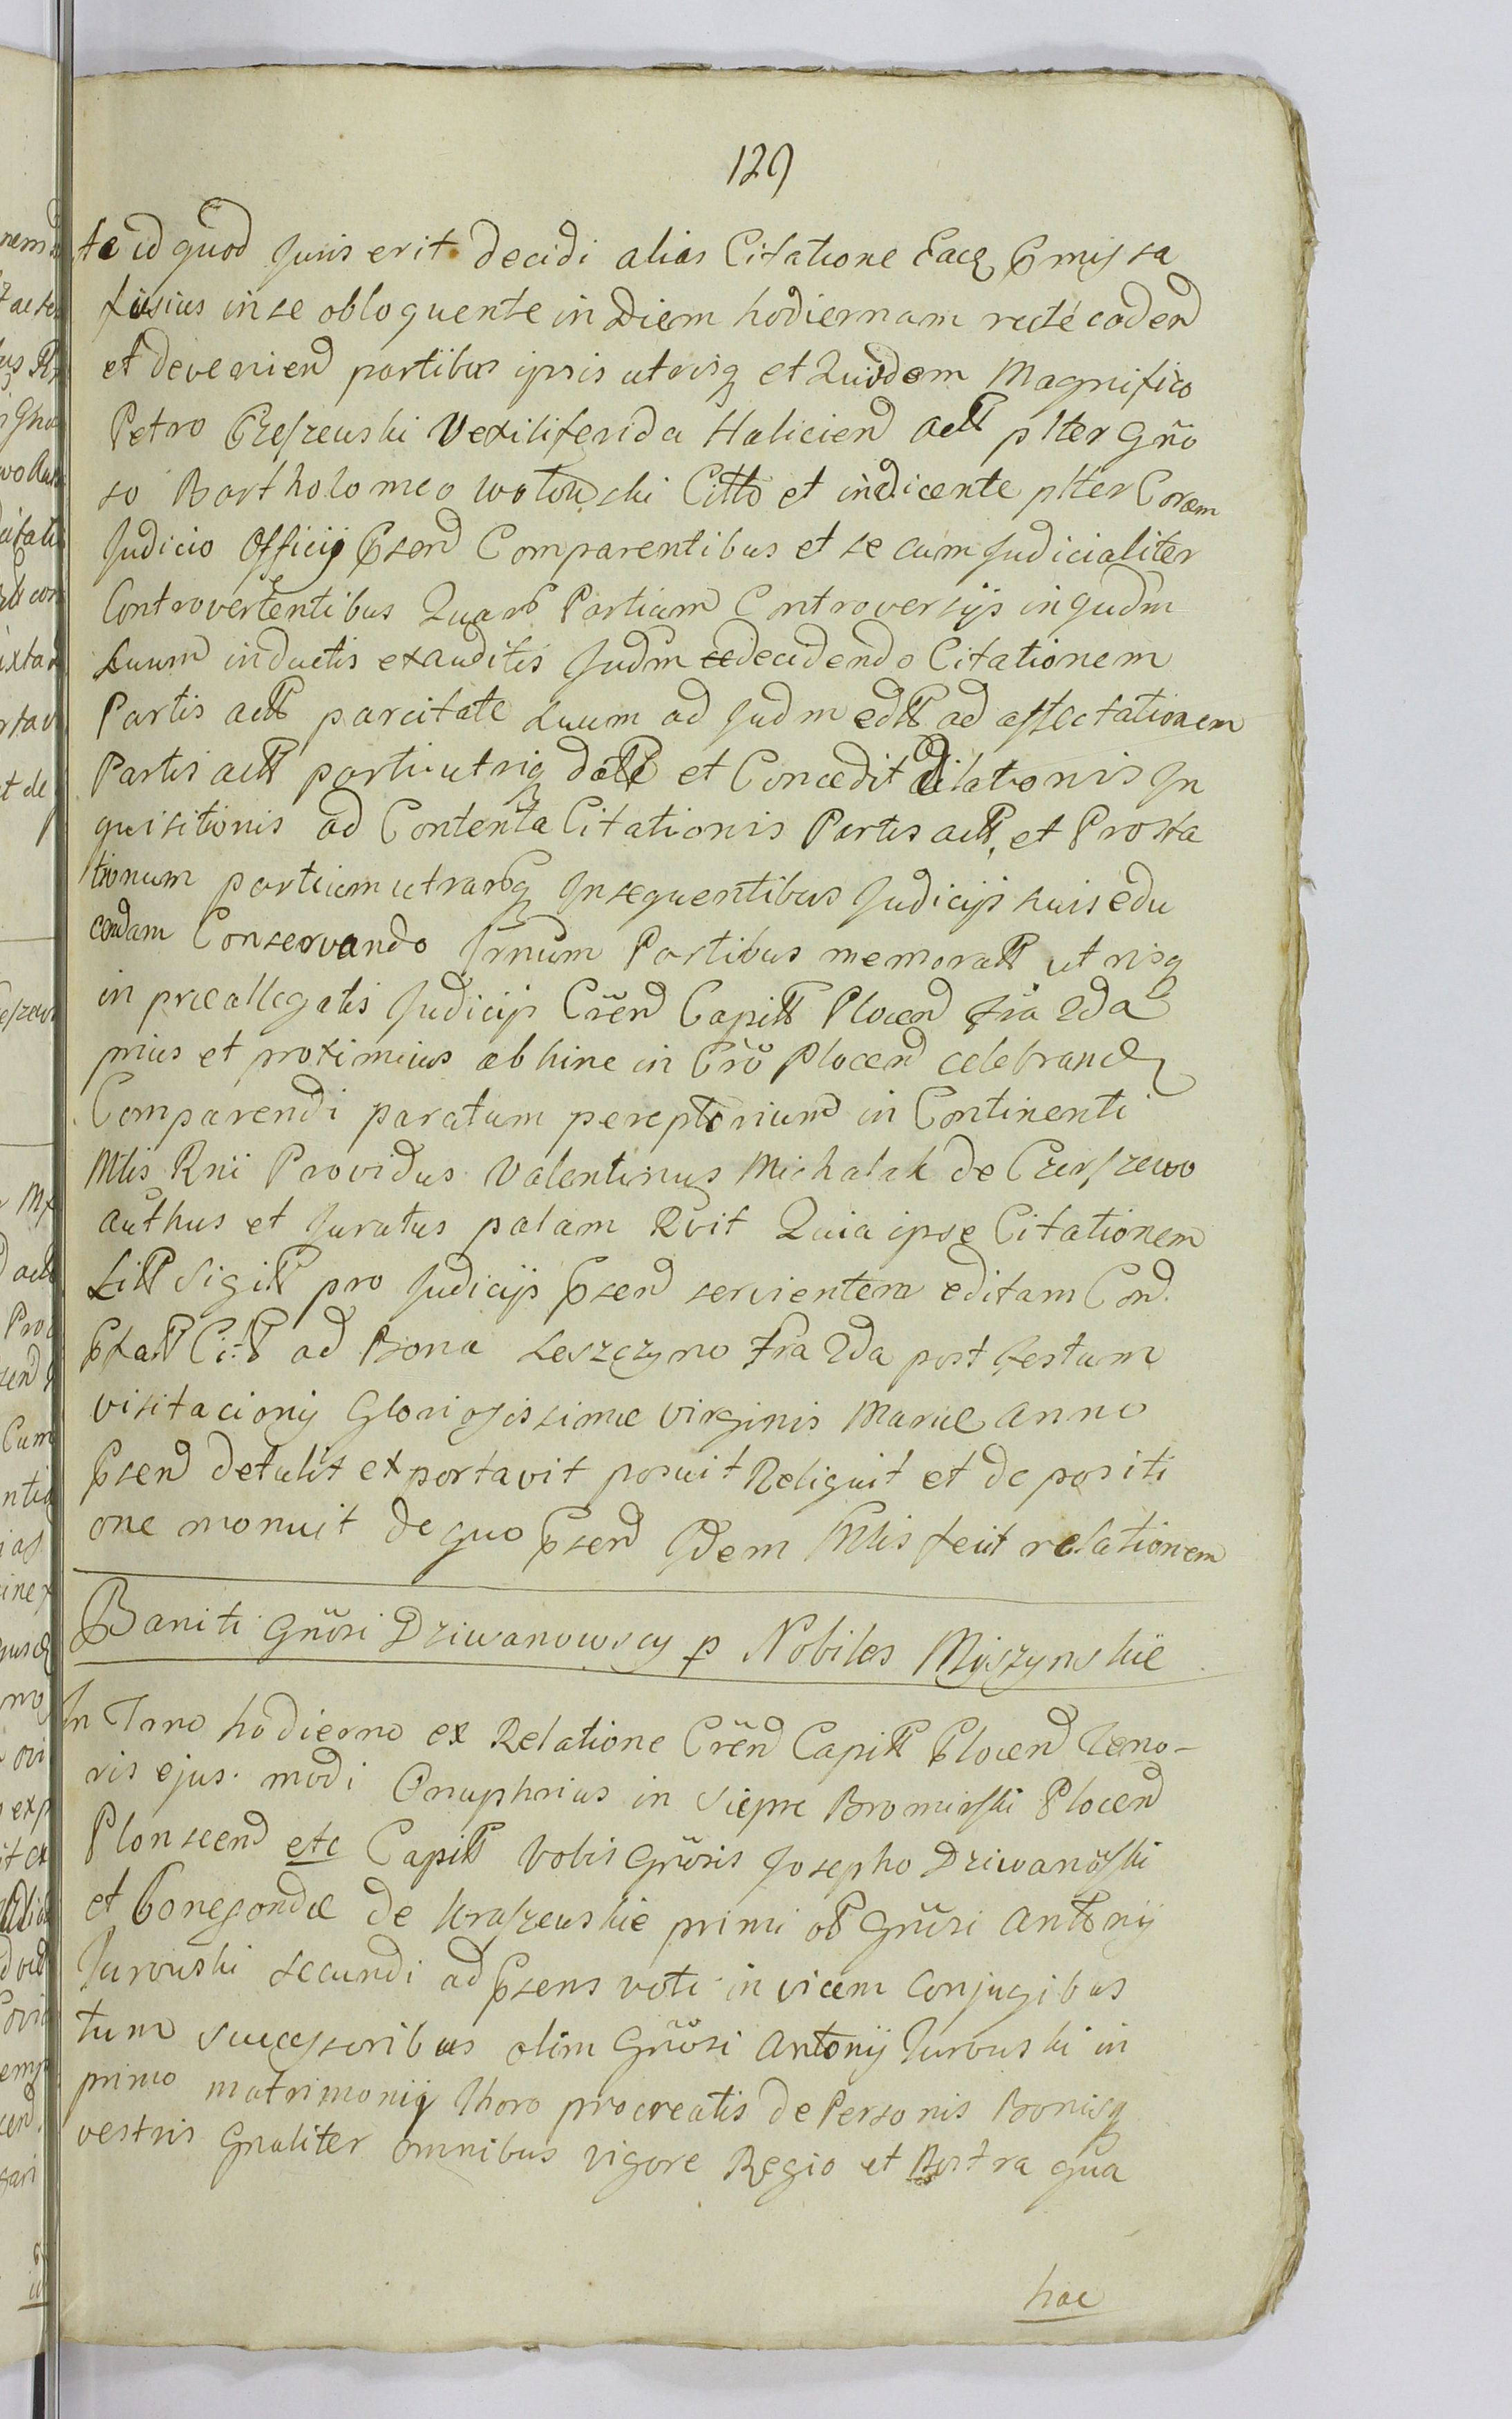 129
te id quod Juris erit decidi alias Citatione Eaq præmissa
fusius in se obloquente in Diem hodiernam recté caden
et devenien partibus ipsis utrisq et Quidem Magnifico
Petro Czeszewski Vexiliferida Halicien act pltter Gño
so Bartholomeo Citto et indicente plter Coram
Judicio Officij Psen Comparentibus et se cum Judicialiter
Controvertentibus Quarb Partium Controversijs in Judm
suum inductis exauditis Judm decidendo Citationem
Partis act parcitate suum ad Judm edtt ad affectationem
Partis act parti utriq datt et Concedit dilationis In
quisitionis ad Contenta Citationis Partis act, et Prosta
tionum partium utrarq Insequentibus Judicijs suis edu
cendam Conservando Trnum Partibus memoratt utrisq
in præallegatis Judicijs Crën Capitt Plocen fria 2da
prius et proximius abhinc in Crö Plocen celebrand
Comparendi paratum pereptorium in Continenti
Mtlis Rnii Providus Valentinus Michalak de Czerszewo
authus et Juratus palam Rvit Quia ipse Citationem
Litt Sigitt pro Judicijs Psen servientem editam Con
Pfatt Citt ad Bona Leszczyno fria 2da post festum
visitacionij Gloriosissimæ Virginis Mariæ anno
Psen detulit et portavit posuit Reliquit et de positi
one monuit de quo Psen Idem Mtlis fecit relationem
Baniti Gnösi Dziwanowscy p Nobiles Myszynskie
In Trno hodierno ex Relatione Crën Capitt Plocen Teno-
ris ejus. modi Onuphrius in Siepre Bromirski Plocen
Plonscen etc Capitt Vobis Gnösis Josepho Dziwanöski
et Conegondæ de Kraszewskie primi ot Gnösi Antonij
Turowski secundi ad Psens voti in vicem Conjugibus
tum Successoribus olim Gnösi Antonij Turowski in
primo matrimonij thoro procreatis de Personis Bonisq
vestris Gnaliter omnibus vigore Regio et Nostra qua
hac